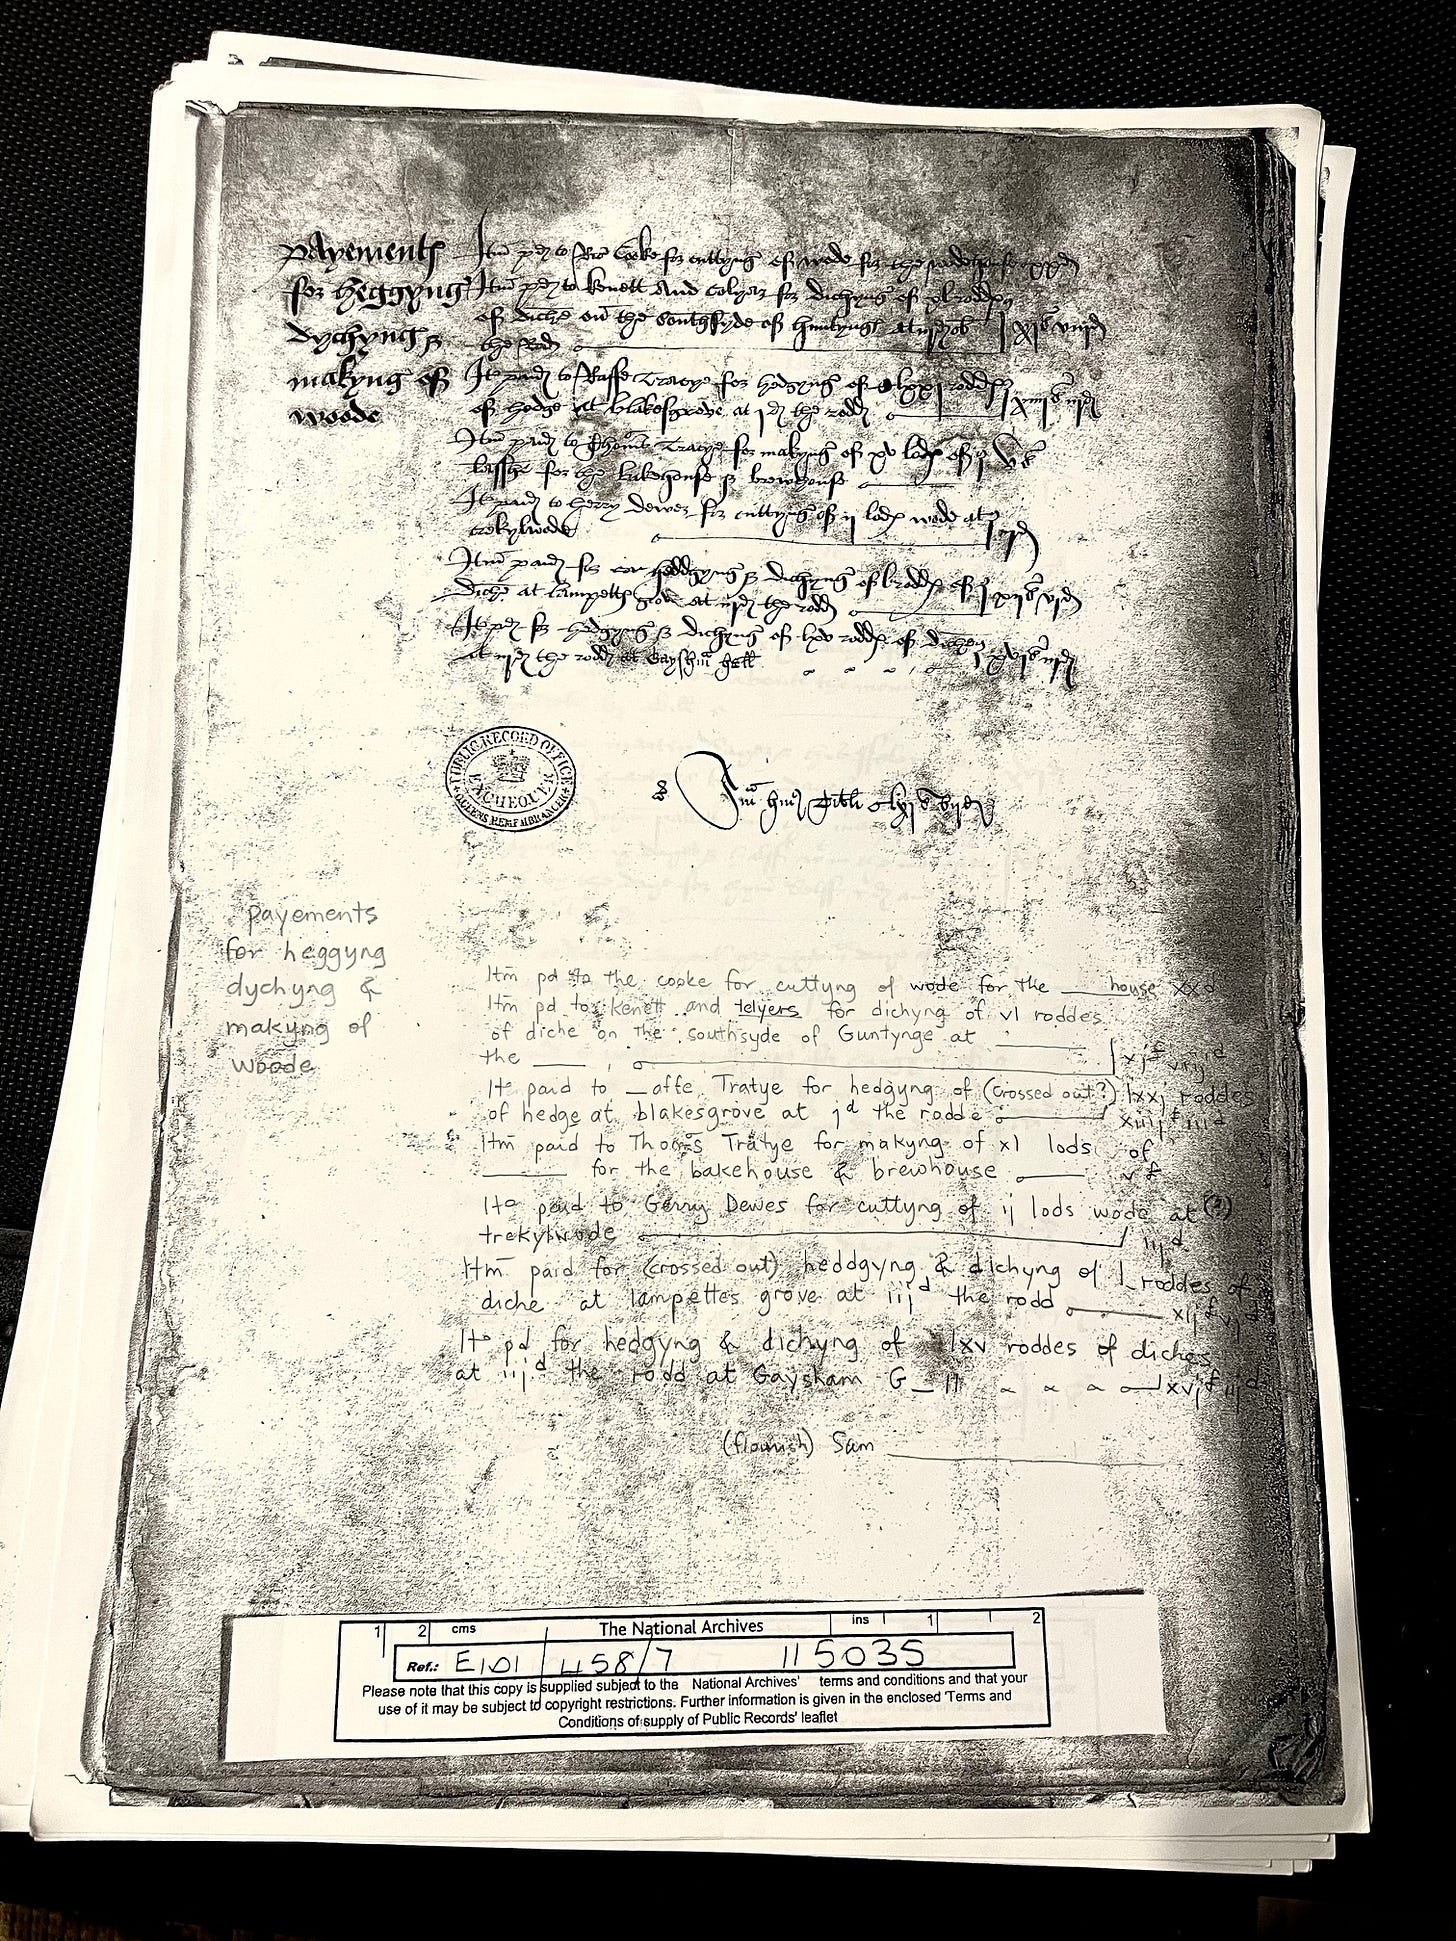 payements
for heggyng
dychyng &
makyng of
woode
Itm pd to Cooke for cuttyng of wode for the xxd
Itm pd to kenett and for dichyng of xl rodd
of diche on the Southsyde of at
the Rodd xjs viijd
It paid to Raffe Tratye for hedgyng of lxxj rodd
of hedge at blakesgrove at jd the rodd
Itm paid to Thoms Tratye for makyng of xv lods of
for the bakehouse & brewhouse vs
It paid to herry Dewes for cuttyng of ij lods wode at
Itm paid for heddgyng & dichyng of l rodd of
diche at lampetts grove at iijd the rodd xijs vjd
It pd for hedgyng & dichyng of lxv rodd of diches
at iijd the rodd at Gayshm hall xvjs iijd
PUBLIC RECORD OFFICE
EXCHEQUER
QUEENS REMEMBRANCER
payements
for heggyng
dychyng &
makyng of
woode
Itm pd to the cooke for cuttyng of wode for the ____house xxd
Itm pd to kenett and telyers for dichyng of vl roddes
of diche on the southsyde of Guntynge at ____
the ____ xjs viijd
Ite paid to _affe Tratye for hedgyng of (crossed out?) lxxj roddes
of hedge at blakesgrove at jd the rodde xiiijs iiid
Itm paid to Thoms Tratye for makyng of xl lods of
____ for the bakehouse & brewhouse vs
Ite paid to Gerry Dewes for cuttyng of ij lods wode at (?)
trekylwode iijd
Itm paid for (crossed out) heddgyng & dichyng of l roddes of
diche at lampettes grove at iijd the rodd xijs vjd
Ite pd for hedgyng & dichyng of lxv roddes of diches
at iijd the rodd at Gaysham G_ll xvjs iijd
(flourish) Sum ____
1 2 cms The National Archives ins 1 2
Ref.: E101/458/7 115035
Please note that this copy is supplied subject to the National Archives' terms and conditions and that your
use of it may be subject to copyright restrictions. Further information is given in the enclosed 'Terms and
Conditions of supply of Public Records' leaflet